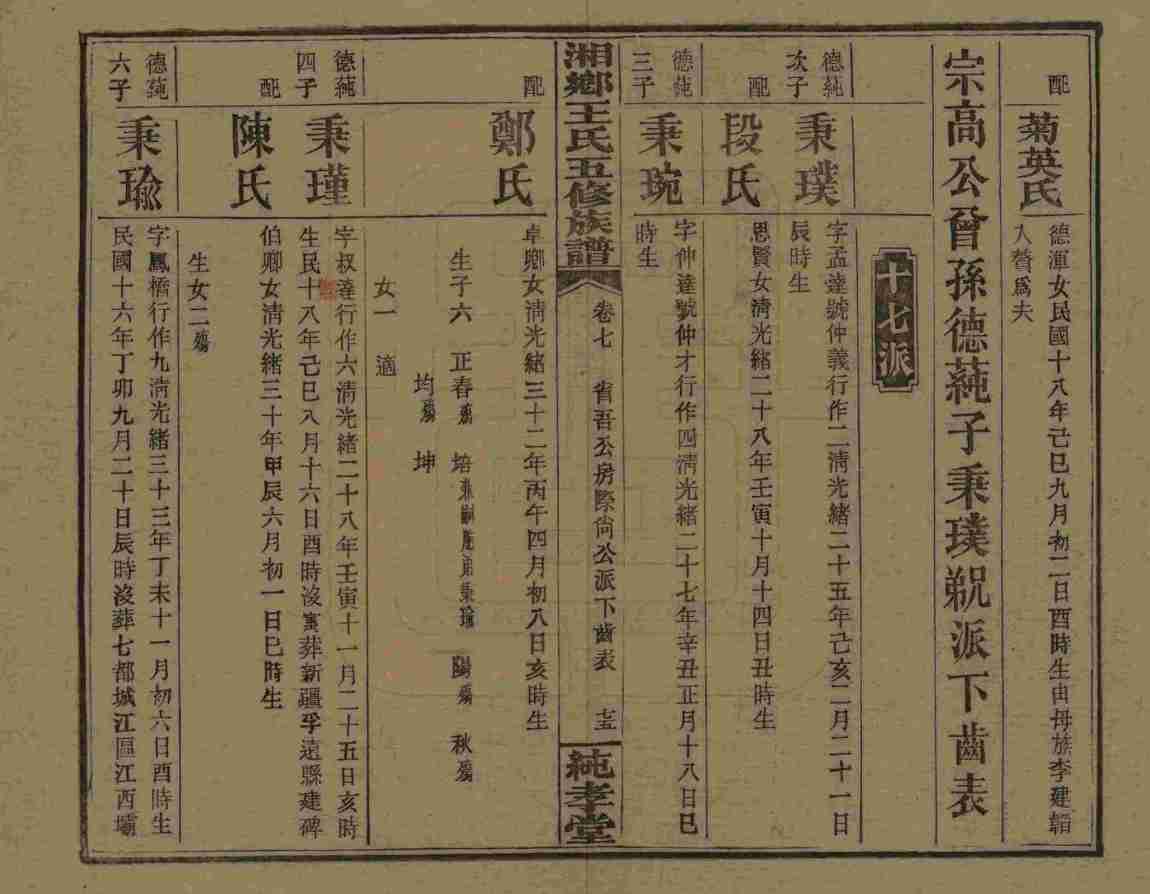 配
菊英氏
德渾女民國十八年己巳九月初二日酉時生由母族李建韜
入贅爲夫
宗高公曾孫德蒓子秉璞 派下齒表
十七派
德蒓
次子
秉璞
字孟達號仲義行作二淸光緒二十五年己亥二月二十一日
辰時生
配
段氏
思賢女淸光緒二十八年壬寅十月十四日丑時生
德蒓
三子
秉琬
字仲達號仲才行作四淸光緒二十七年辛丑正月十八日巳
時生
湘鄉王氏五修族譜
卷七
省吾公房際尙公派下齒表
純孝堂
配
鄭氏
卓卿女淸光緒三十二年丙午四月初八日亥時生
生子六 正春殤 培 陽殤 秋殤
均殤 坤
女一 適
德蒓
四子
秉瑾
字叔達行作六淸光緒二十八年壬寅十一月二十五日亥時
生民十八年己巳八月十六日酉時沒寅葬新疆孚遠縣建碑
配
陳氏
伯卿女淸光緒三十年甲辰六月初一日巳時生
生女二殤
德蒓
六子
秉瑜
字鳳橋行作九淸光緒三十三年丁未十一月初六日酉時生
民國十六年丁卯九月二十日辰時沒葬七都城江區江西壩